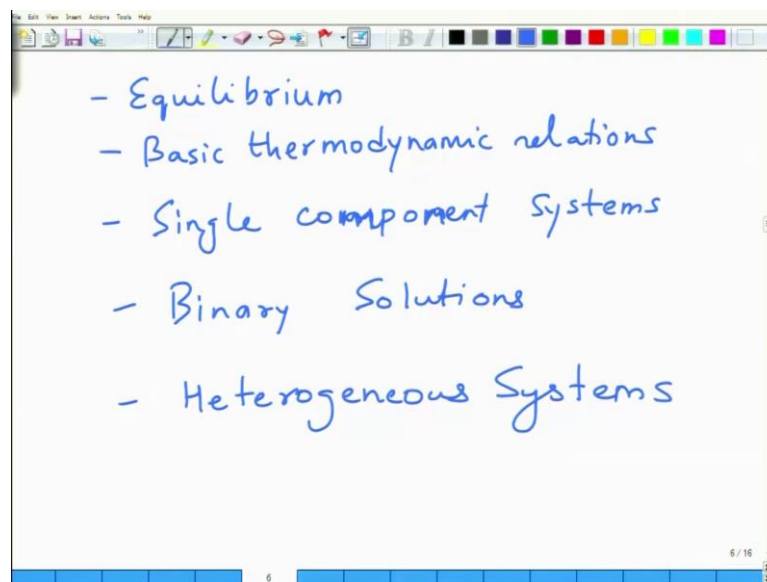 File Edit View Insert Actions Tools Help
B I
- Equilibrium
- Basic thermodynamic relations
- Single component Systems
- Binary Solutions
- Heterogeneous Systems
6 / 16
6